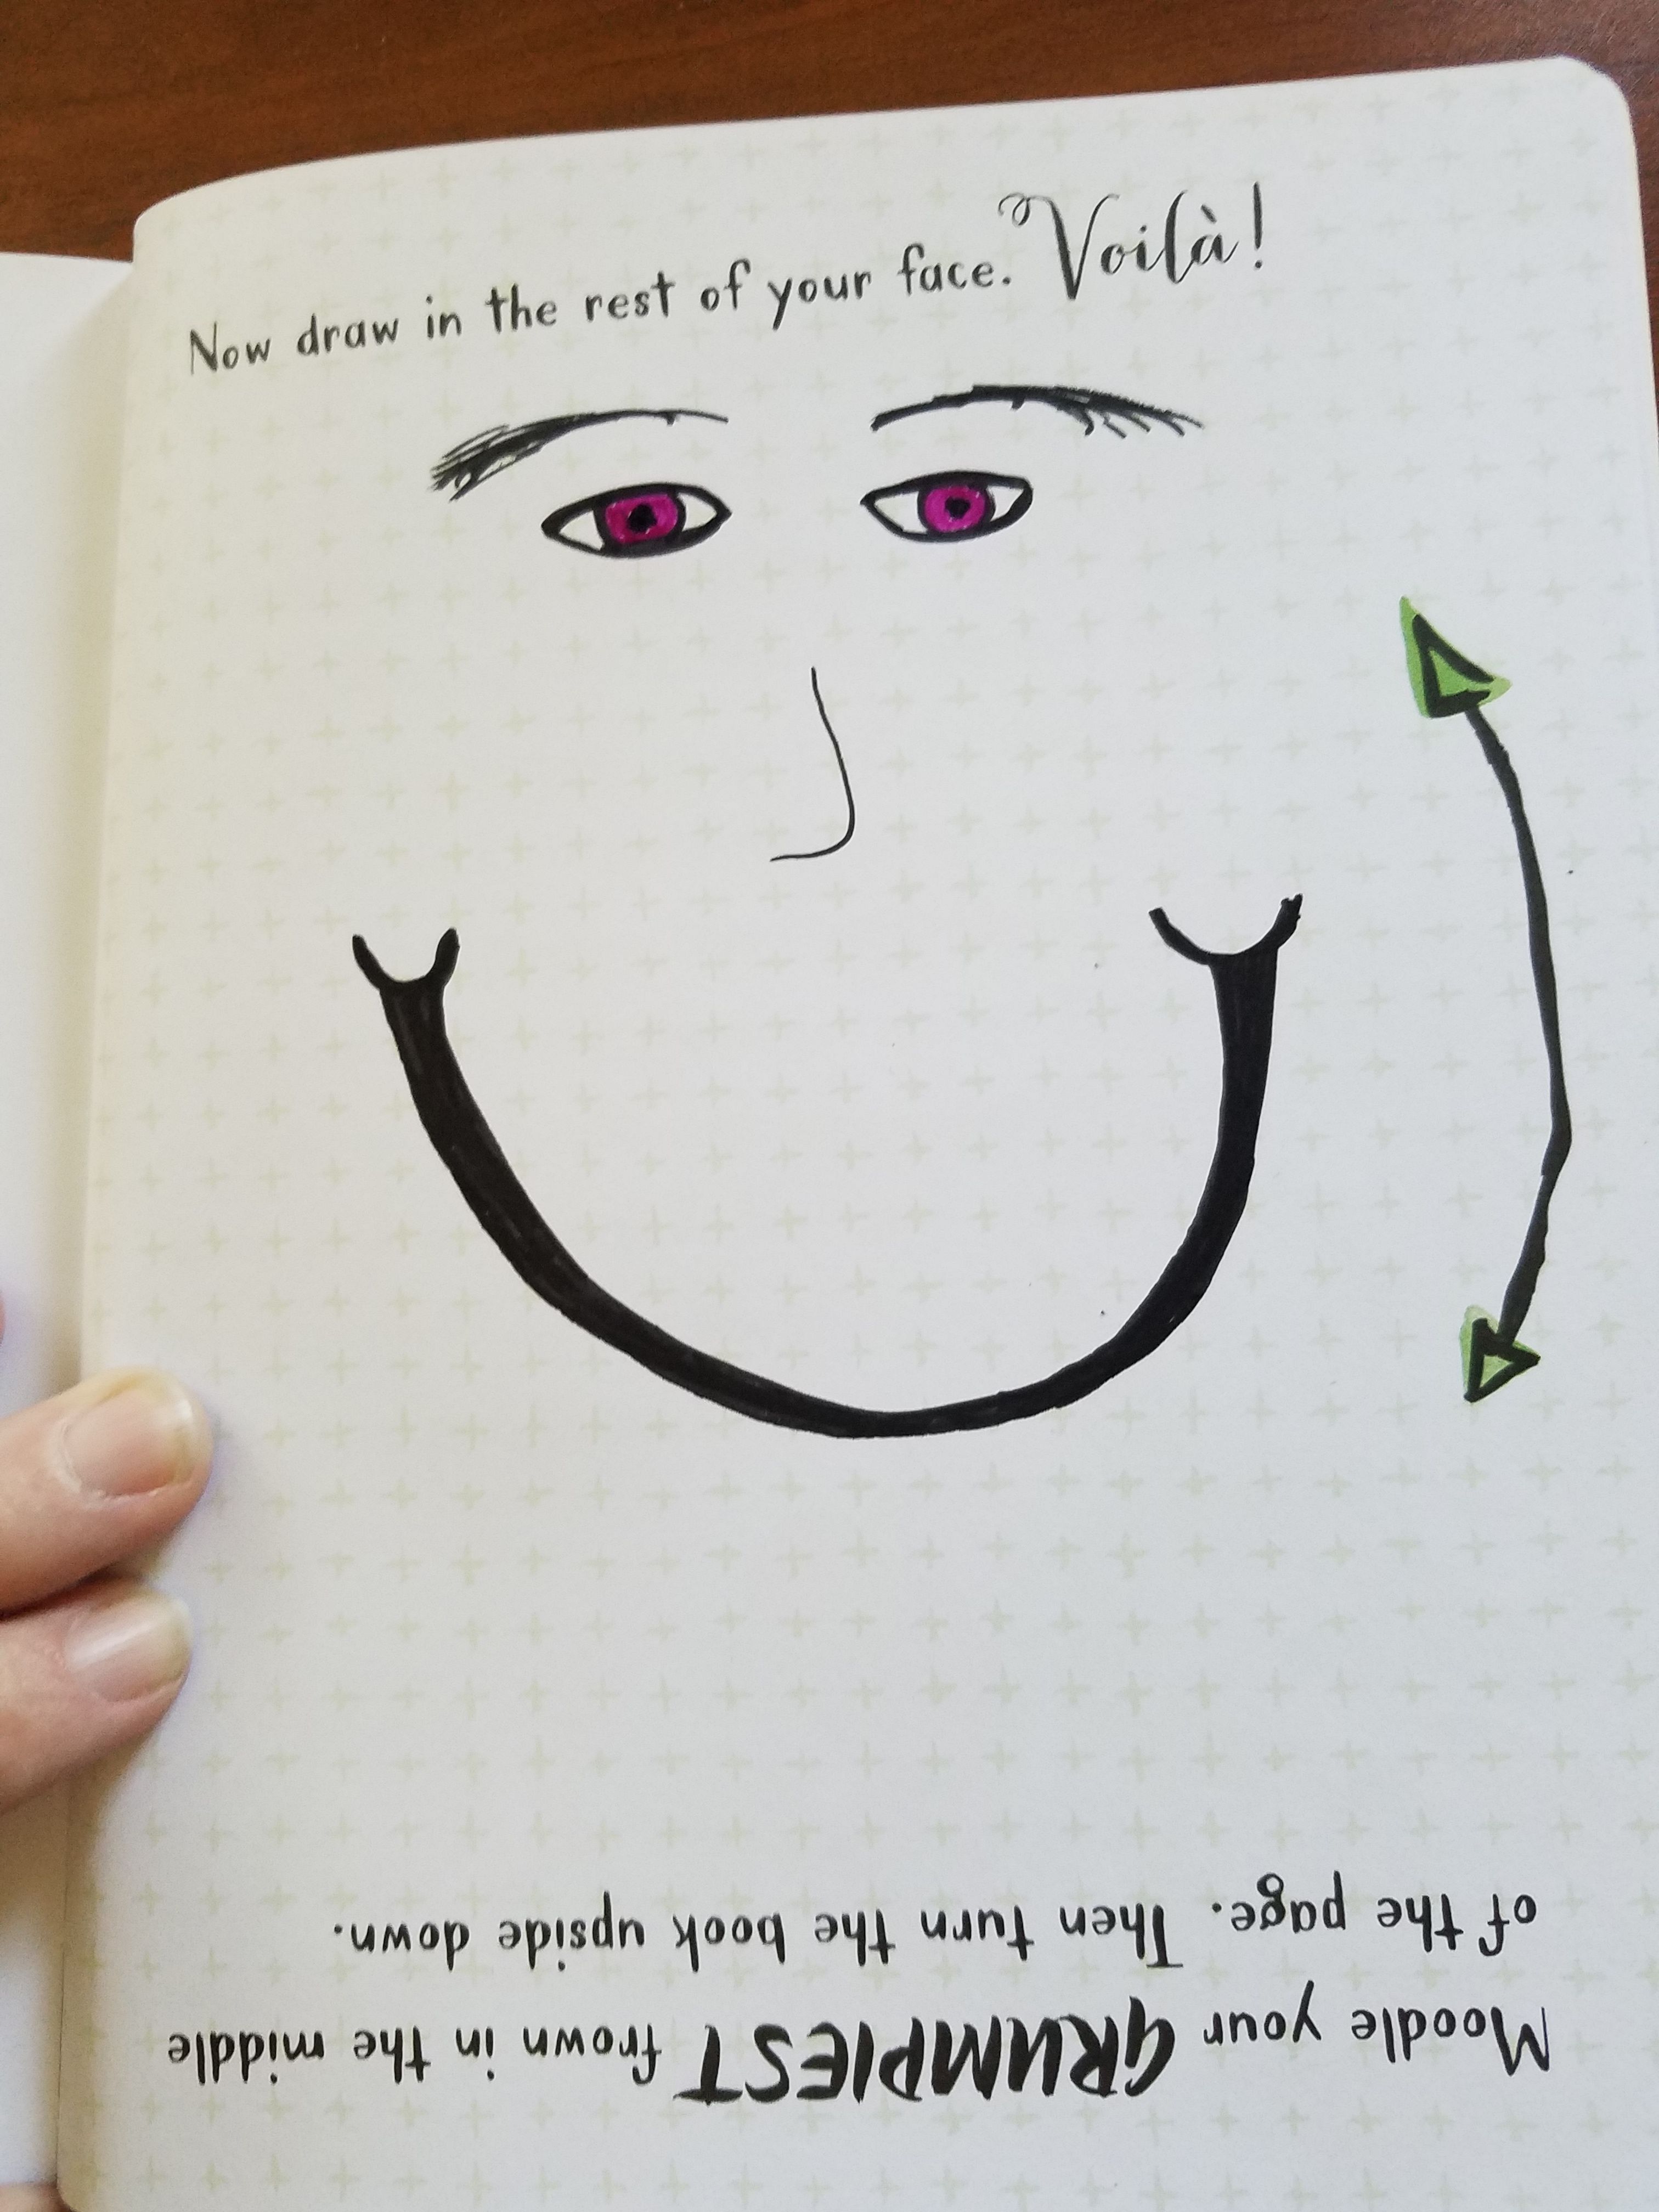 Now draw in the rest of your face. Voilà!
Moodle your GRUMPIEST frown in the middle
of the page. Then turn the book upside down.